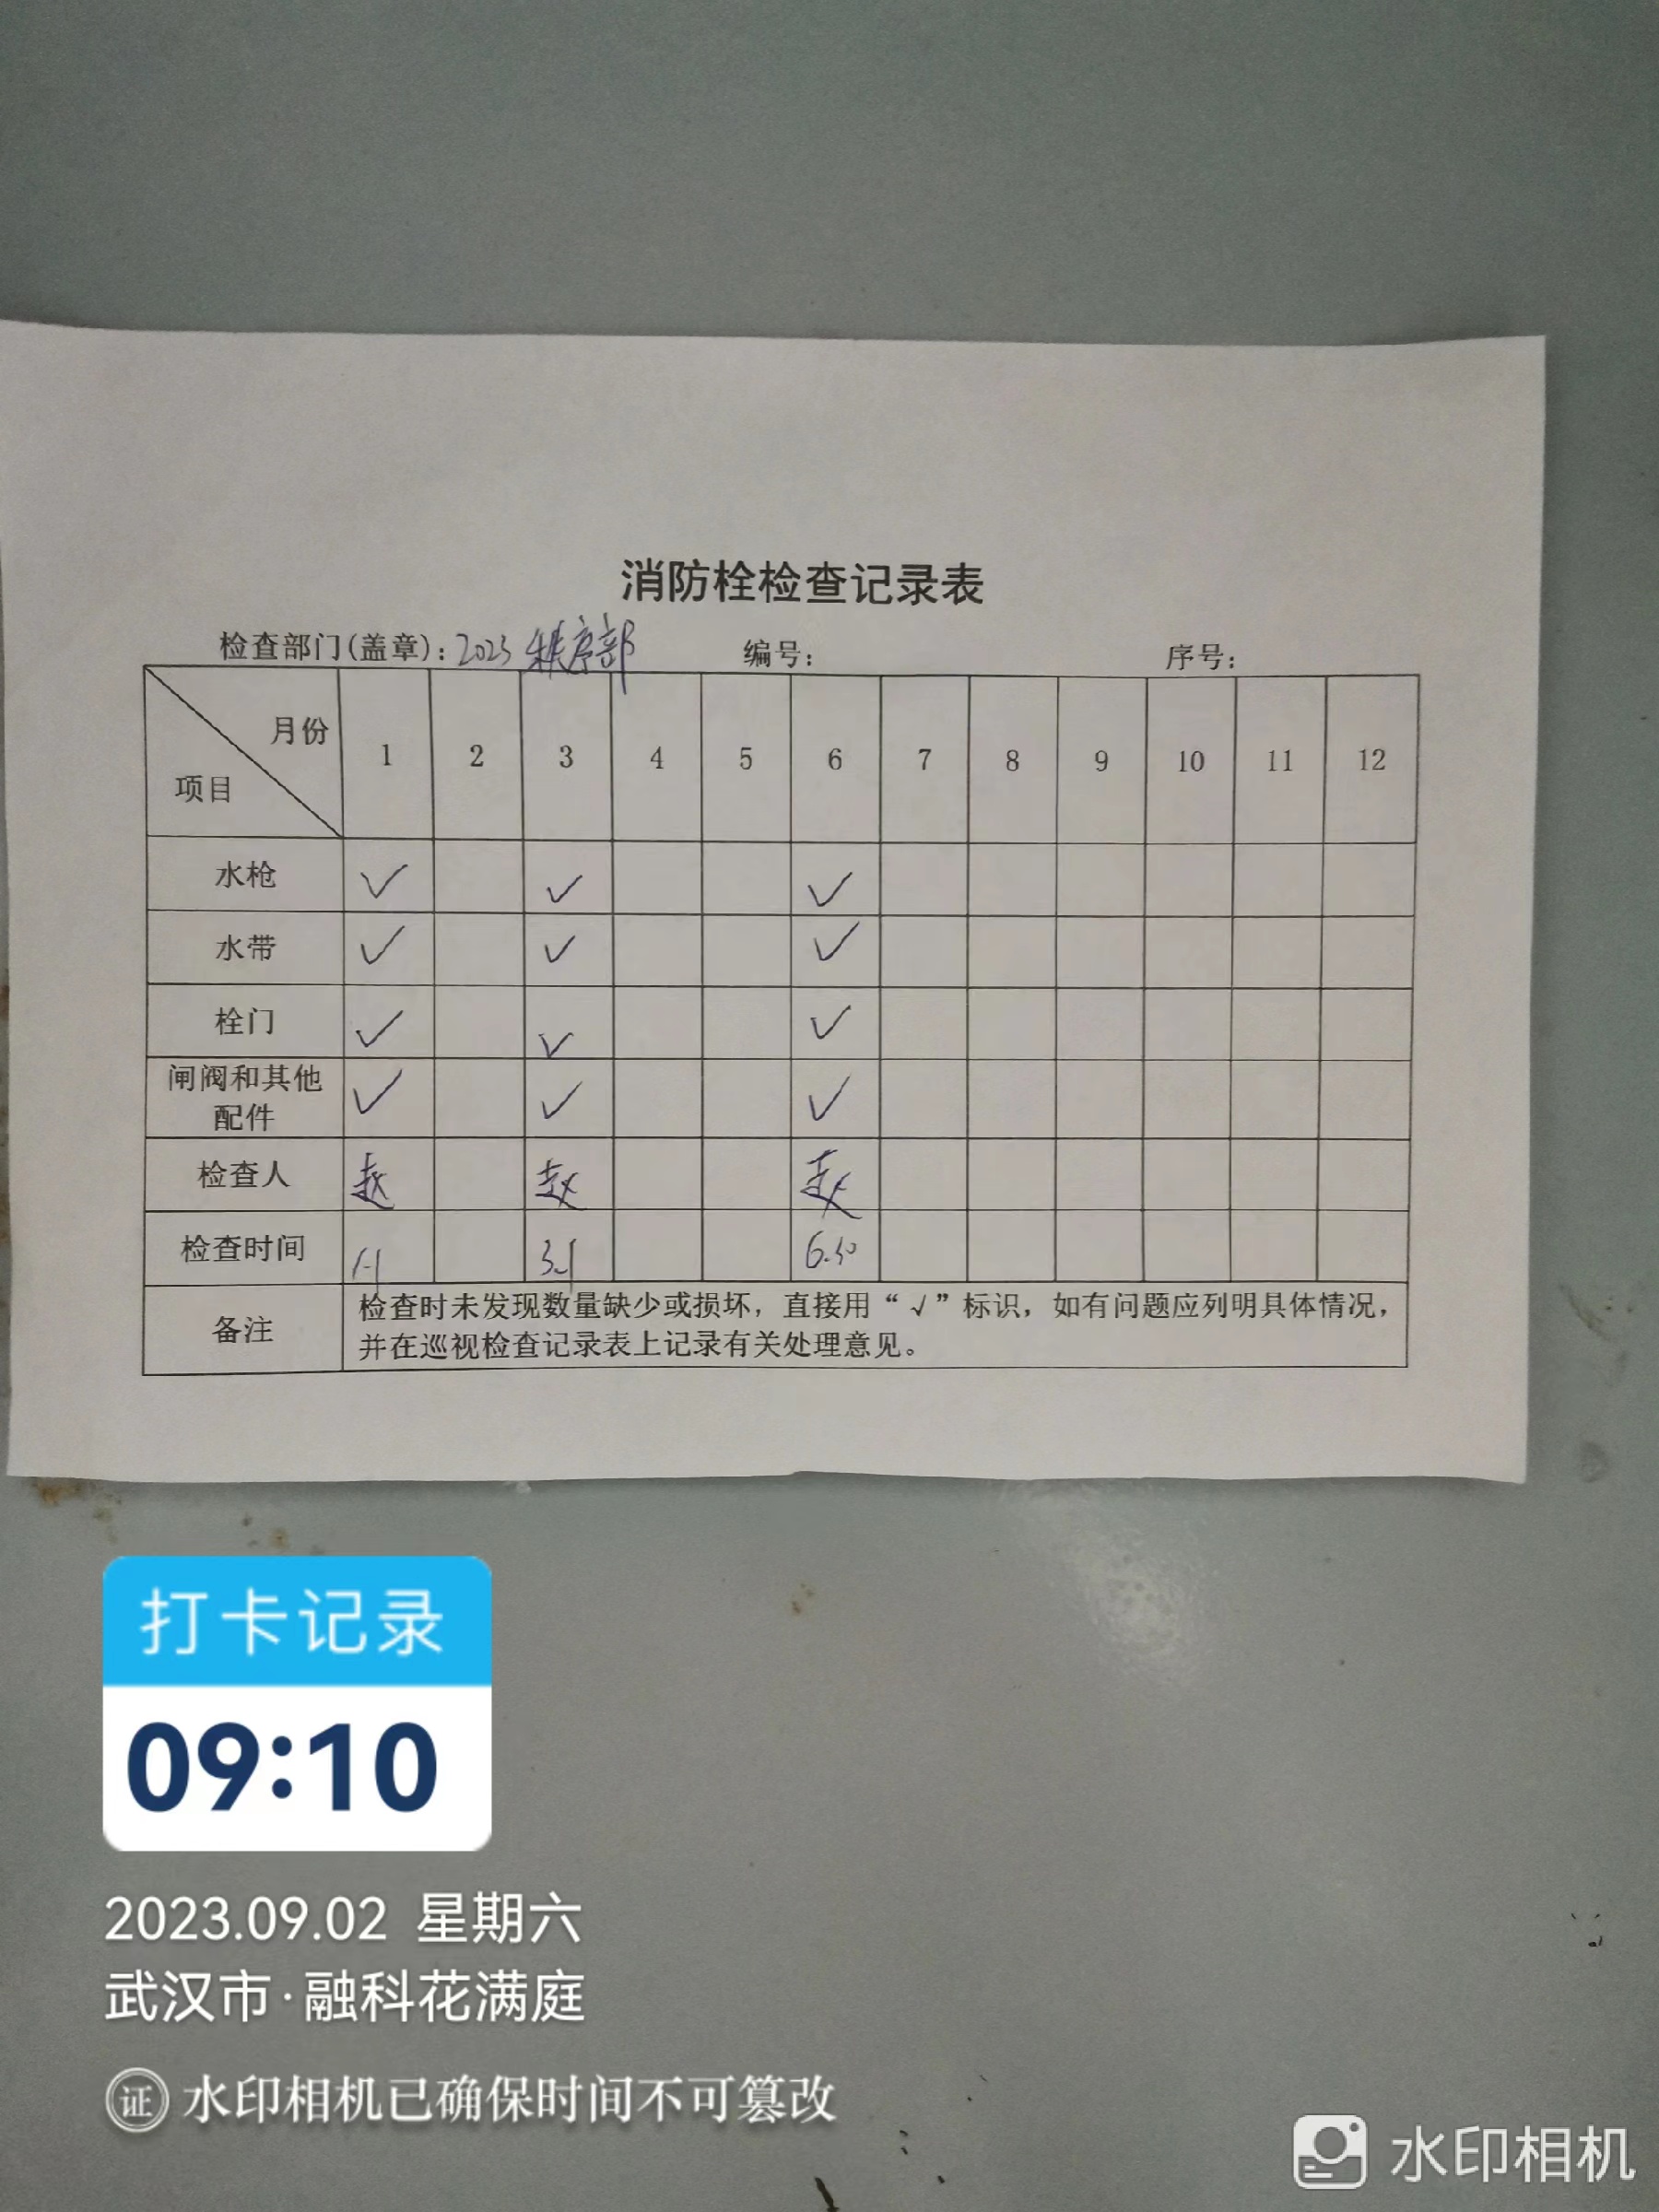 消防栓检查记录表
检查部门(盖章)：2023 秩序部 编号： 序号：
月份 1 2 3 4 5 6 7 8 9 10 11 12
项目
水枪 ✓ ✓ ✓
水带 ✓ ✓ ✓
栓门 ✓ ✓ ✓
闸阀和其他
配件 ✓ ✓ ✓
检查人 赵 赵 赵
检查时间 1.1 3.1 6.30
备注 检查时未发现数量缺少或损坏，直接用“√”标识，如有问题应列明具体情况，
并在巡视检查记录表上记录有关处理意见。
打卡记录
09:10
2023.09.02 星期六
武汉市·融科花满庭
证 水印相机已确保时间不可篡改
水印相机